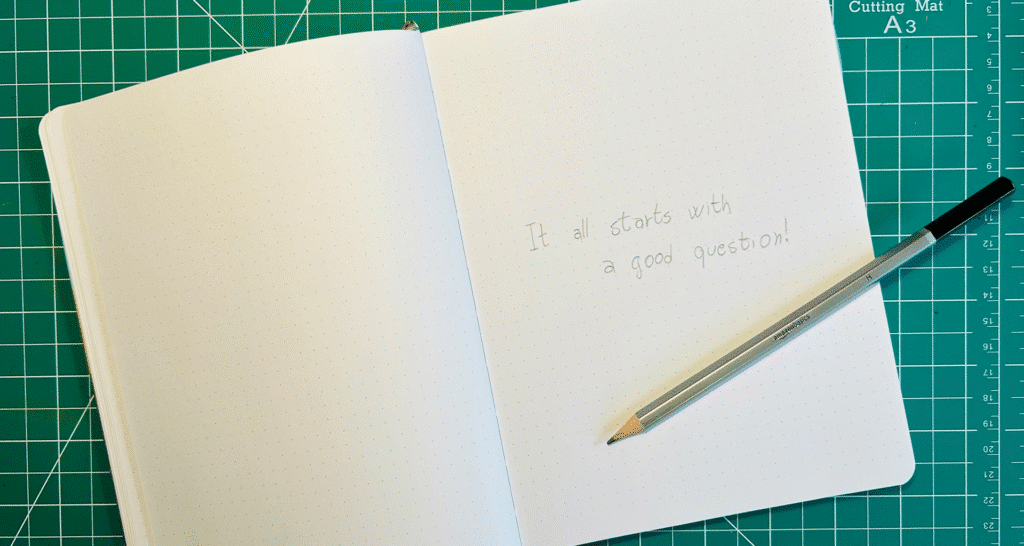 Cutting Mat
A3
3
4
5
6
7
8
9
11
12
13
14
15
16
17
18
19
20
21
22
23
It all starts with
a good question!
H